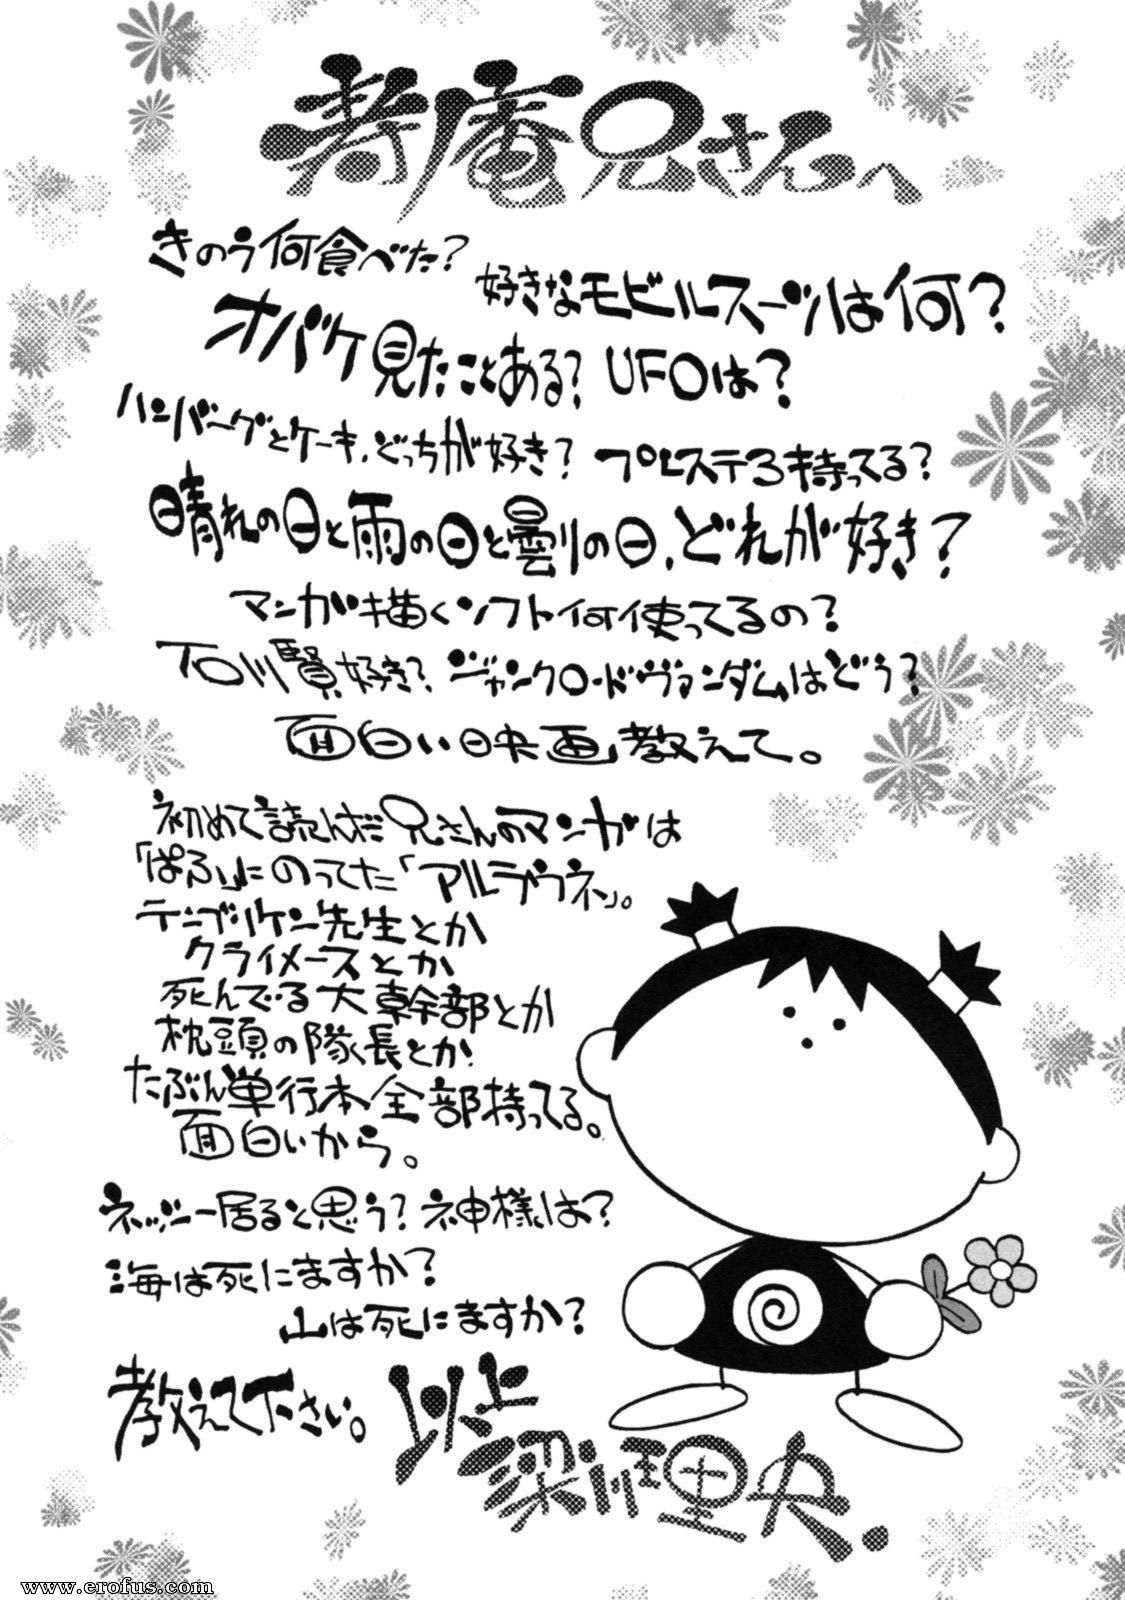 寿庵兄さんへ
きのう何食べた?
好きなモビルスーツは何?
オバケ見たことある? UFOは?
ハンバーグとケーキ、どっちが好き? プレステ3持ってる?
晴れの日と雨の日と曇りの日、どれが好き?
マンガ描くソフト何使ってるの?
石川賢好き? ジャンクロードヴァンダムはどう?
面白い映画教えて。
初めて読んだ兄さんのマンガは
「ぱふ」にのってた「アルラウネ」。
テンプリケン先生とか
クライメースとか
死んでる大幹部とか
枕頭の隊長とか
たぶん単行本全部持ってる。
面白いから。
ネッシー居ると思う? 神様は?
海は死にますか?
山は死にますか?
教えて下さい。
以上
梁川理央.
www.erofus.com